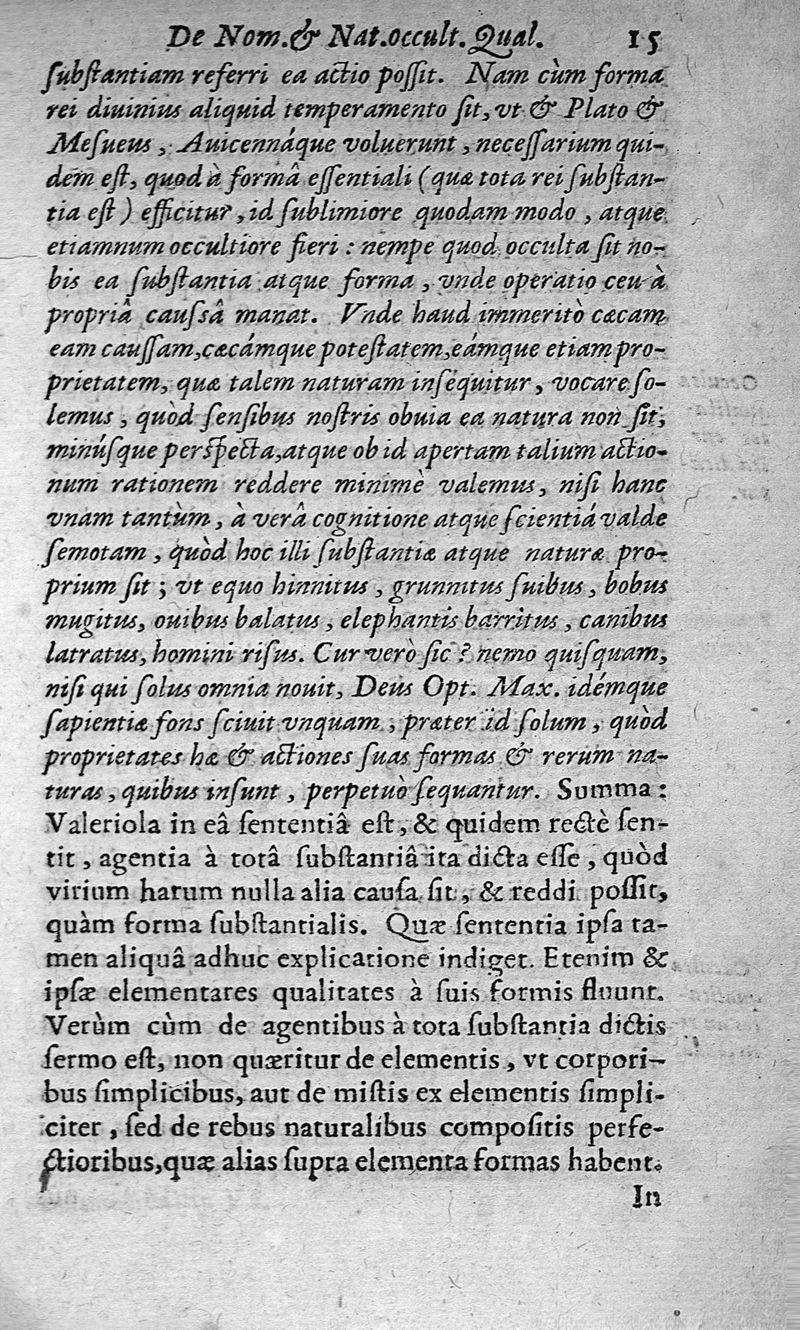 De Nom. & Nat. occult. Qual. 15
ſubſtantiam referri ea actio poſſit. Nam cùm forma
rei diuinius aliquid temperamento ſit, vt & Plato &
Meſueus, Auicennáque voluerunt, neceſſarium qui-
dem eſt, quod à formâ eſſentiali (quæ tota rei ſubſtan-
tia eſt) efficitur, id ſublimiore quodam modo, atque
etiamnum occultiore fieri : nempe quod occulta ſit no-
bis ea ſubſtantia atque forma, vnde operatio ceu à
propriâ cauſsâ manat. Vnde haud immeritò cæcam
eam cauſſam, cæcámque poteſtatem, eámque etiam pro-
prietatem, quæ talem naturam inſequitur, vocare ſo-
lemus, quòd ſenſibus noſtris obuia ea natura non ſit,
minúſque perſpecta, atque ob id apertam talium actio-
num rationem reddere minimè valemus, niſi hanc
vnam tantùm, à verâ cognitione atque ſcientiá valde
ſemotam, quòd hoc illi ſubſtantiæ atque naturæ pro-
prium ſit ; vt equo hinnitus, grunnitus ſuibus, bobus
mugitus, ouibus balatus, elephantis barritus, canibus
latratus, homini riſus. Cur verò ſic ? nemo quiſquam,
niſi qui ſolus omnia nouit, Deus Opt. Max. idémque
ſapientiæ fons ſciuit vnquam, præter id ſolum, quòd
proprietates hæ & actiones ſuas formas & rerum na-
turas, quibus inſunt, perpetuò ſequantur. Summa :
Valeriola in eâ ſententiâ eſt, & quidem rectè ſen-
tit, agentia à totâ ſubſtantiâ ita dicta eſſe, quòd
virium harum nulla alia cauſa ſit, & reddi poſſit,
quàm forma ſubſtantialis. Quæ ſententia ipſa ta-
men aliquâ adhuc explicatione indiget. Etenim &
ipſæ elementares qualitates à ſuis formis fluunt.
Verùm cùm de agentibus à tota ſubſtantia dictis
ſermo eſt, non quæritur de elementis, vt corpori-
bus ſimplicibus, aut de miſtis ex elementis ſimpli-
citer, ſed de rebus naturalibus compoſitis perfe-
ctioribus, quæ alias ſupra elementa formas habent.
In